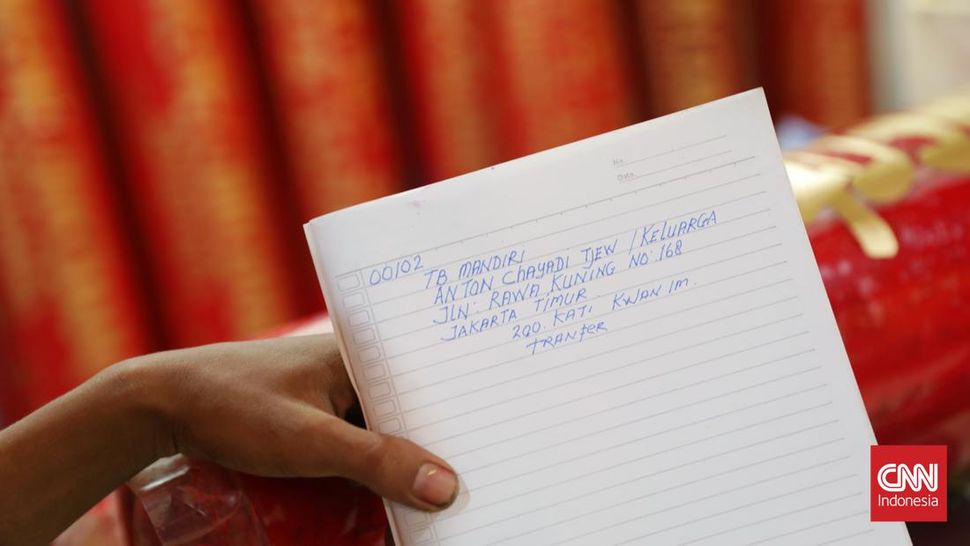 No.
Date
00102
TB MANDIRI
ANTON CHAYADI TJEW / KELUARGA
JLN: RAWA KUNING NO: 168
JAKARTA TIMUR
200. KATI KWAN IM.
TRANFER
CNN
Indonesia